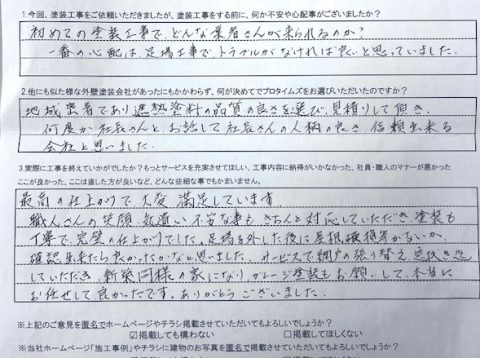 1.今回、塗装工事をご依頼いただきましたが、塗装工事をする前に、何か不安や心配事がございましたか？
初めての塗装工事で、どんな業者さんが来られるのか？
一番の心配は、足場工事で、トラブルがなければ良いと思っていました。
2.他にも似た様な外壁塗装会社があったにもかかわらず、何が決めてでプロタイムズをお選びいただいたのですか？
地域密着であり遮熱塗料の品質の良さを選び、見積りして頂き、
何度か社長さんと、お話して社長さんの人柄の良さ 信頼出来る
会社と思いました。
3.実際に工事を終えていかがでしたか？もっとサービスを充実させてほしい、工事内容に納得がいかなかった、社員・職人のマナーが悪かった
ここが良かった、ここは直した方が良いなど、どんな些細な事でもかまいません。
最高の仕上がりで 大変 満足しています。
職人さんの笑顔、気遣い 不安な事も きちんと対応していただき、塗装も
丁寧で、完璧の仕上がりでした。足場を外した後に屋根破損等がないか
確認出来たら良かったかなと思いました。サービスで網戸の張り替え、
していただき、新築同様の家になり、ガレージ塗装もお願いして、本当に
お任せして良かったです。ありがとうございました。
※上記のご意見を匿名でホームページやチラシ掲載させていただいてもよろしいでしょうか？
☑掲載しても構わない □掲載してほしくない
※当社ホームページ「施工事例」やチラシに建物のお写真を匿名で掲載させていただいてもよろしいでしょうか？